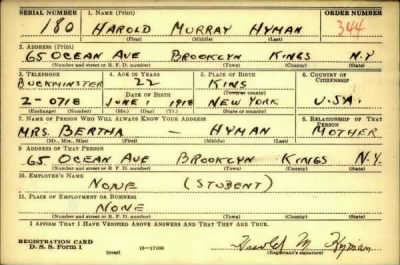 SERIAL NUMBER 1. NAME (Print) ORDER NUMBER
180 HAROLD MURRAY HYMAN 344
(First) (Middle) (Last)
2. ADDRESS (Print)
65 OCEAN AVE BROOKLYN KINGS N.Y
(Number and street or R. F. D. number) (Town) (County) (State)
3. TELEPHONE 4. AGE IN YEARS 5. PLACE OF BIRTH 6. COUNTRY OF CITIZENSHIP
BUCKMINSTER 22 KINS
DATE OF BIRTH (Town or county)
2-0718 JUNE 1 1918 NEW YORK U.SA.
(Exchange) (Number) (Mo.) (Day) (Yr.) (State or country)
7. NAME OF PERSON WHO WILL ALWAYS KNOW YOUR ADDRESS 8. RELATIONSHIP OF THAT PERSON
MRS. BERTHA — HYMAN MOTHER
(Mr., Mrs., Miss) (First) (Middle) (Last)
9. ADDRESS OF THAT PERSON
65 OCEAN AVE BROOKLYN KINGS N.Y.
(Number and street or R. F. D. number) (Town) (County) (State)
10. EMPLOYER'S NAME
NONE (STUDENT)
11. PLACE OF EMPLOYMENT OR BUSINESS
NONE
(Number and street or R. F. D. number) (Town) (County) (State)
I AFFIRM THAT I HAVE VERIFIED ABOVE ANSWERS AND THAT THEY ARE TRUE.
REGISTRATION CARD
D. S. S. FORM 1 (over) 16—17105 Harold M Hyman
(Registrant's signature)